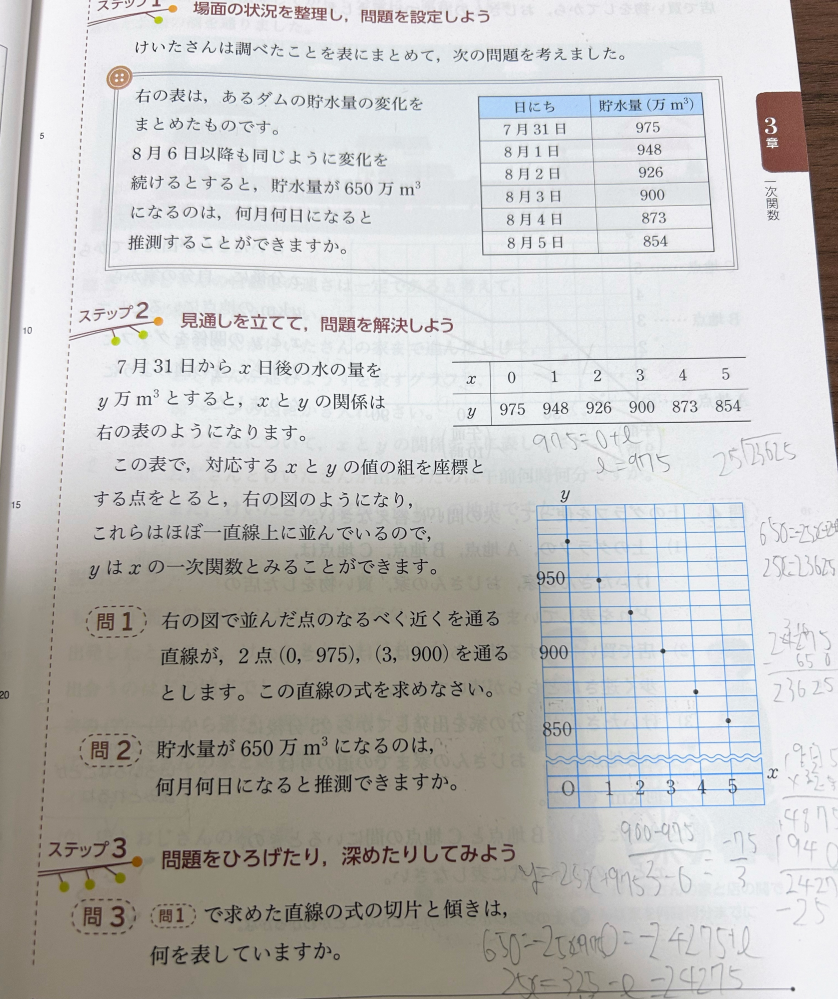 ステップ1 場面の状況を整理し，問題を設定しよう
けいたさんは調べたことを表にまとめて，次の問題を考えました。
右の表は，あるダムの貯水量の変化を
まとめたものです。
8月6日以降も同じように変化を
続けるとすると，貯水量が650万m³
になるのは，何月何日になると
推測することができますか。
日にち 貯水量(万m³)
7月31日 975
8月1日 948
8月2日 926
8月3日 900
8月4日 873
8月5日 854
3章
一次関数
5
10
15
20
ステップ2 見通しを立てて，問題を解決しよう
7月31日からx日後の水の量を
y万m³とすると，xとyの関係は
右の表のようになります。
この表で，対応するxとyの値の組を座標と
する点をとると，右の図のようになり，
これらはほぼ一直線上に並んでいるので，
yはxの一次関数とみることができます。
x 0 1 2 3 4 5
y 975 948 926 900 873 854
975=0+l
l=975
25√23625
y
950
900
850
O 1 2 3 4 5 x
24275
650
23625
問1 右の図で並んだ点のなるべく近くを通る
直線が，2点(0, 975)，(3, 900)を通る
とします。この直線の式を求めなさい。
問2 貯水量が650万m³になるのは，
何月何日になると推測できますか。
ステップ3 問題をひろげたり，深めたりしてみよう
問3 問1で求めた直線の式の切片と傾きは，
何を表していますか。
900-975
-75
3
y=-25x+975
-25